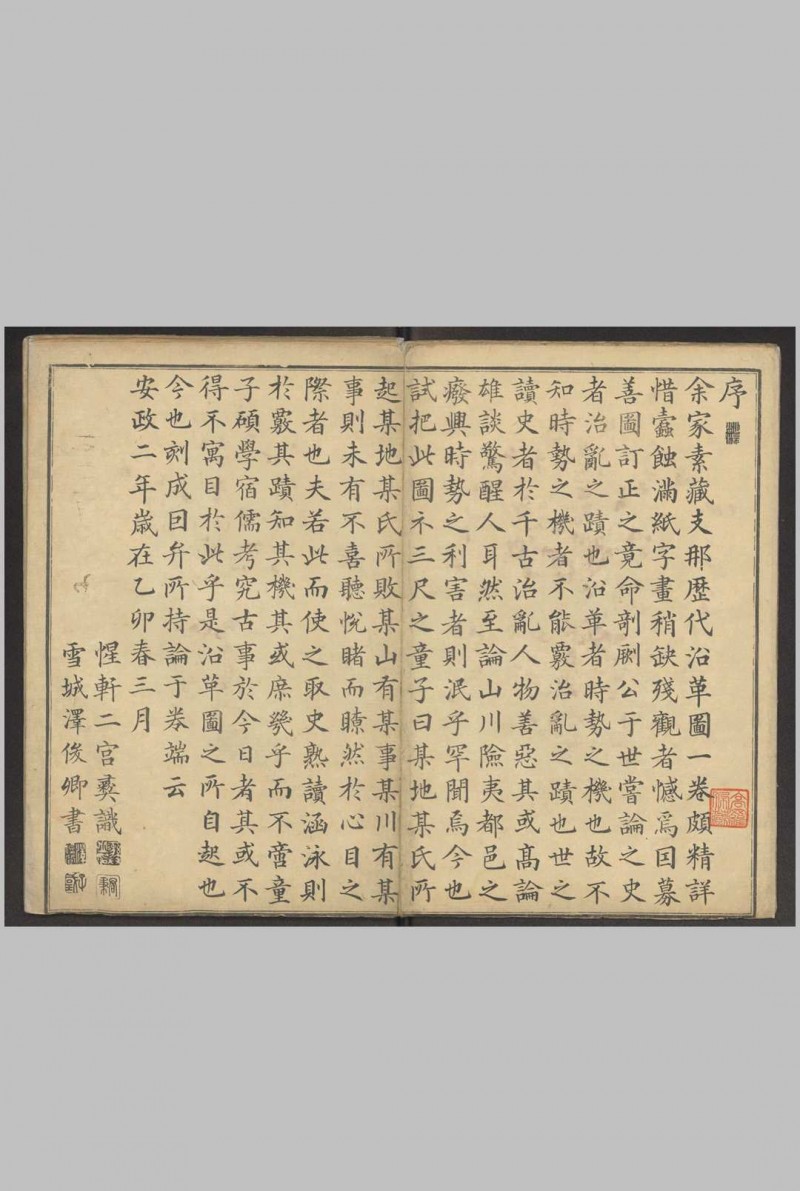 序
余家素藏支那歷代沿革圖一卷頗精詳
惜蠧蝕滿紙字畫稍缺殘觀者憾焉因募
善圖訂正之竟命剞劂公于世嘗論之史
者治亂之蹟也沿革者時勢之機也故不
知時勢之機者不能覈治亂之蹟也世之
讀史者於千古治亂人物善惡其或高論
雄談驚醒人耳然至論山川險夷都邑之
癈興時勢之利害者則泯乎罕聞焉今也
試把此圖示三尺之童子曰某地某氏所
起某地某氏所敗某山有某事某川有某
事則未有不喜聽悅睹而瞭然於心目之
際者也夫若此而使之取史熟讀涵泳則
於覈其蹟知其機其或庶幾乎而不啻童
子碩學宿儒考究古事於今日者其或不
得不寓目於此乎是沿革圖之所自起也
今也刻成因弁所持論于券端云
安政二年歲在乙卯春三月
惺軒二宮彛識
雪城澤俊卿書